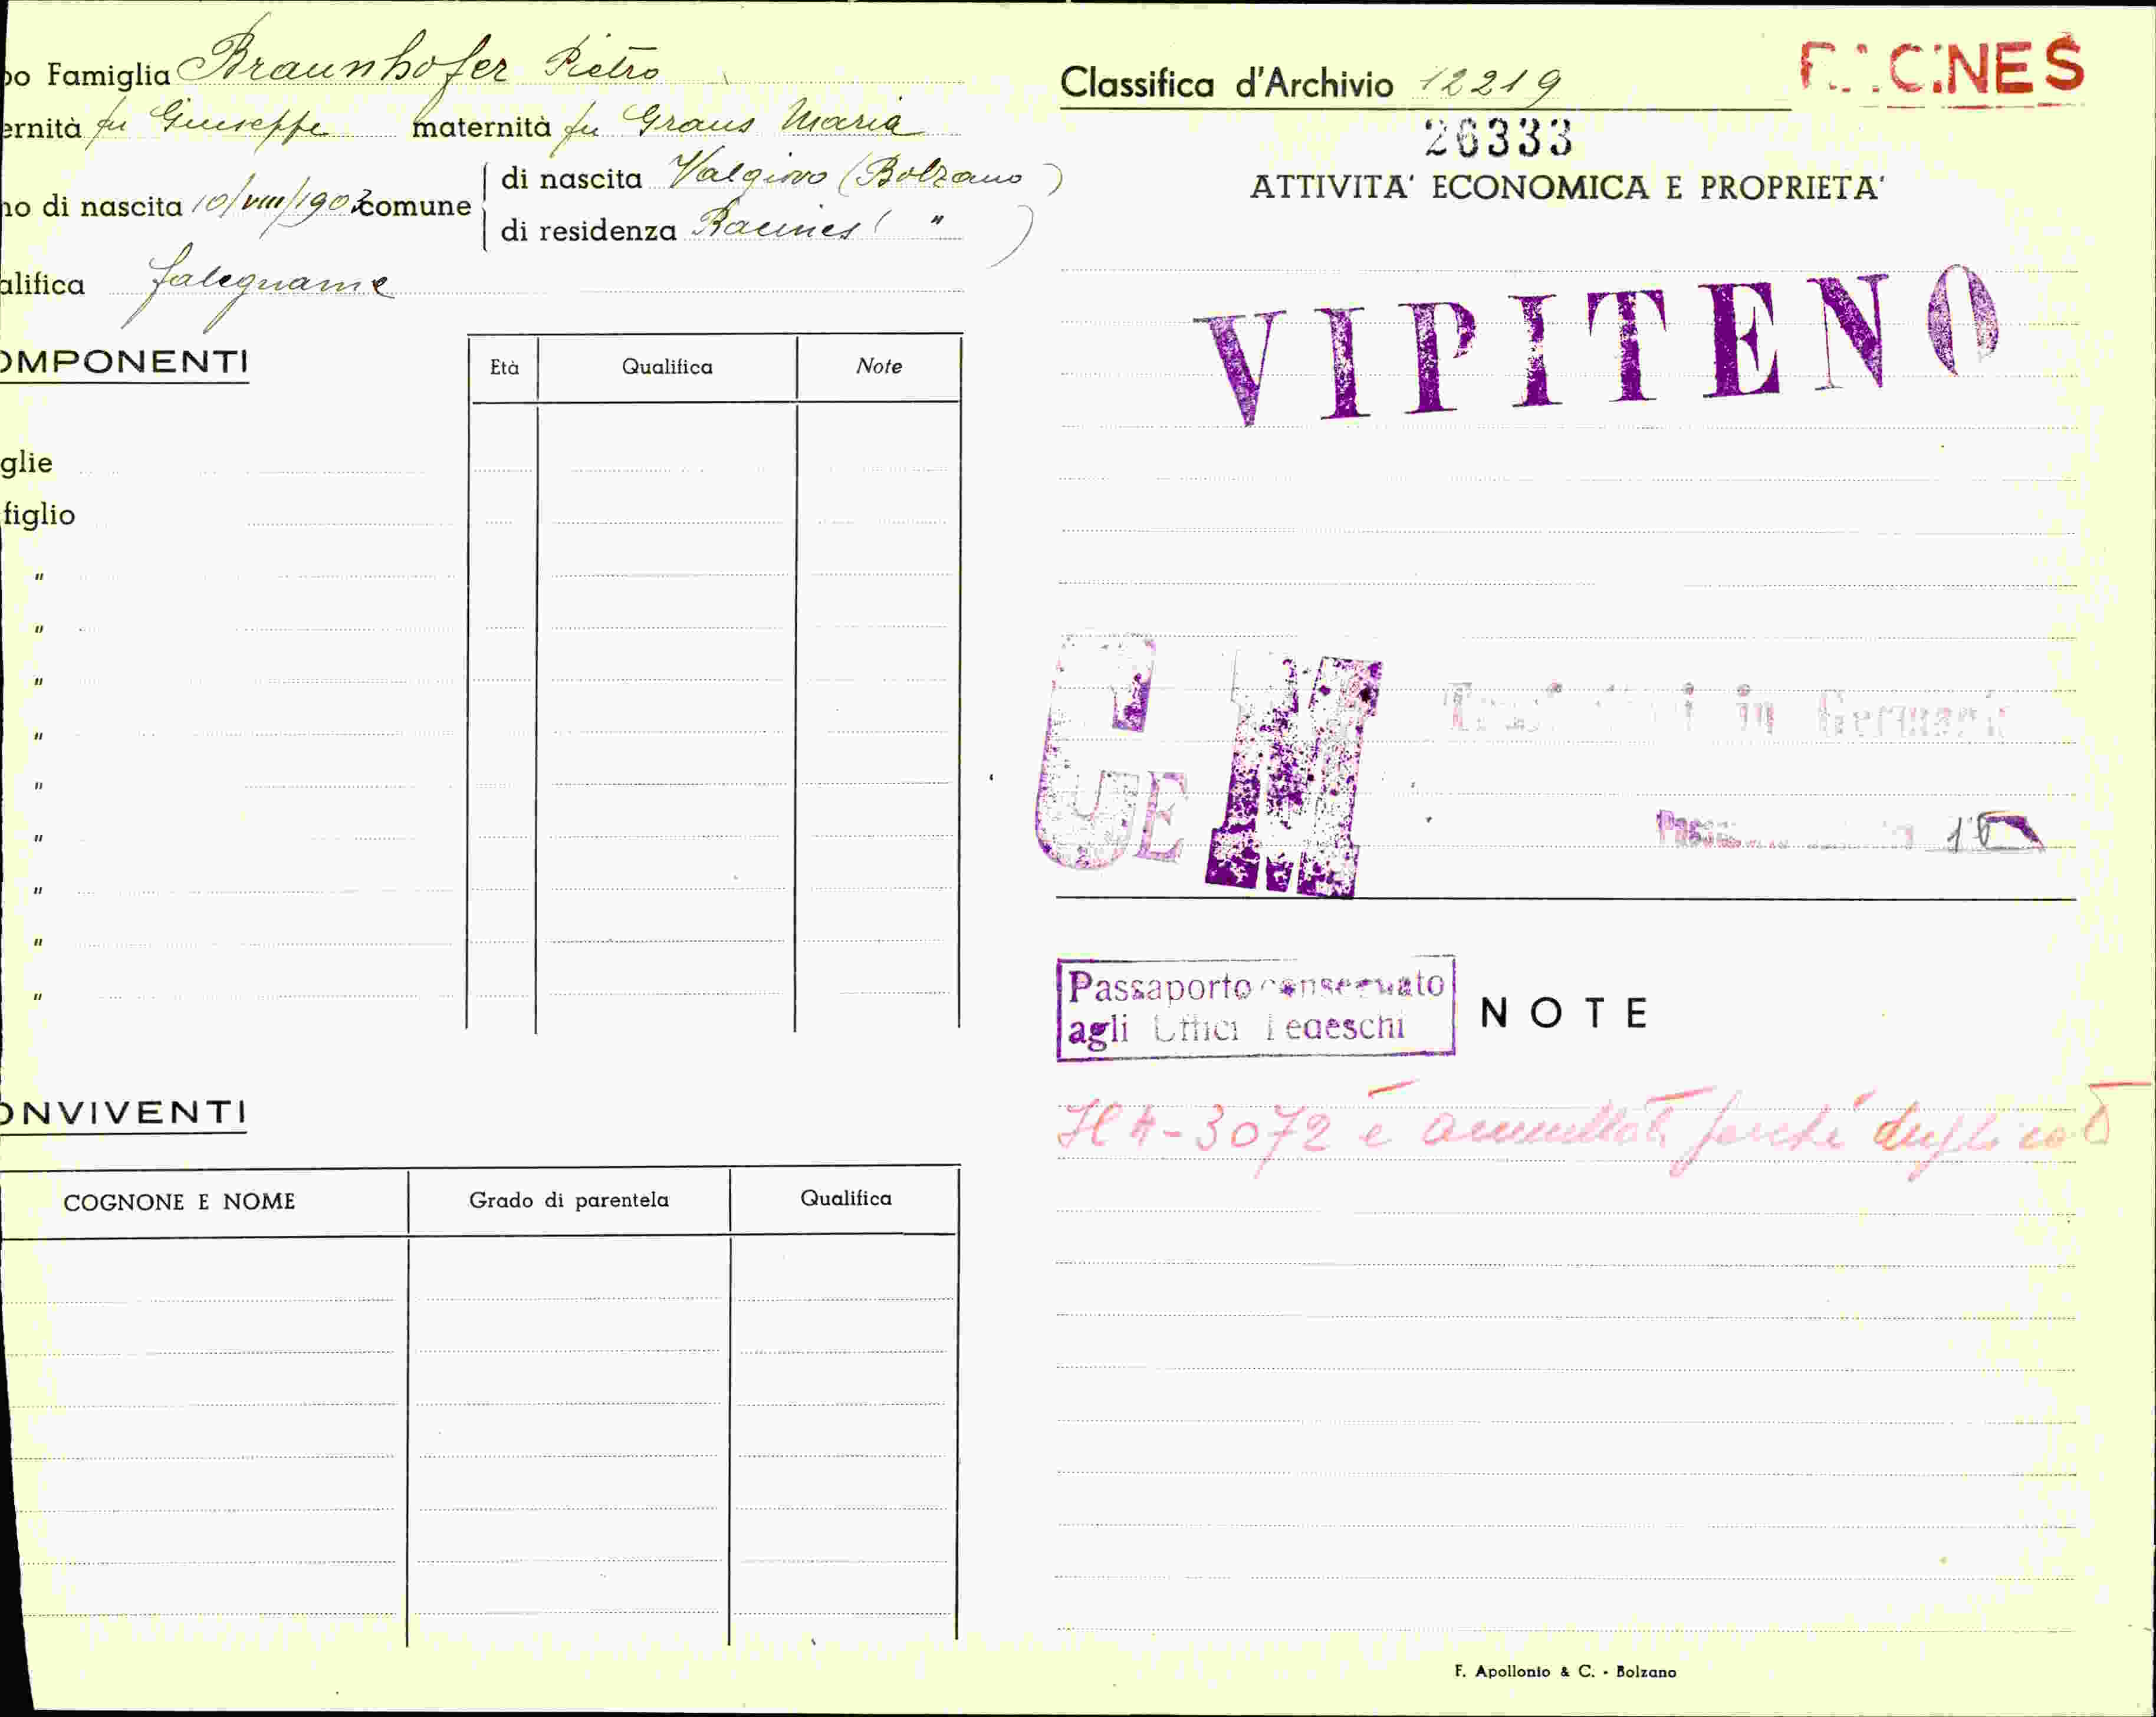 po Famiglia Braunhofer Pietro
ernità fu Giuseppe maternità fu Graus Maria
no di nascita 10/VIII/1903 comune
di nascita Valgiovo (Bolzano)
di residenza Racines ( " )
alifica falegname
OMPONENTI
Età Qualifica Note
glie
figlio
"
"
"
"
"
"
"
"
"
ONVIVENTI
COGNONE E NOME Grado di parentela Qualifica
Classifica d'Archivio 12219
26333
ATTIVITA' ECONOMICA E PROPRIETA'
VIPITENO
in Germani
Passaporto conservato
agli Uffici Tedeschi
NOTE
3072 è annullata perché
F. Apollonio & C. - Bolzano